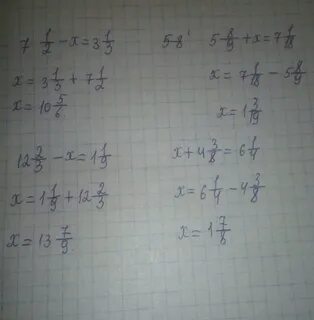 7 1/2 - x = 3 1/3
x = 3 1/3 + 7 1/2
x = 10 5/6
12 2/3 - x = 1 1/9
x = 1 1/9 + 12 2/3
x = 13 7/9
5 8/9 + x = 7 1/18
x = 7 1/18 - 5 8/9
x + 4 3/8 = 6 1/4
x = 6 1/4 - 4 3/8
x = 1 7/8